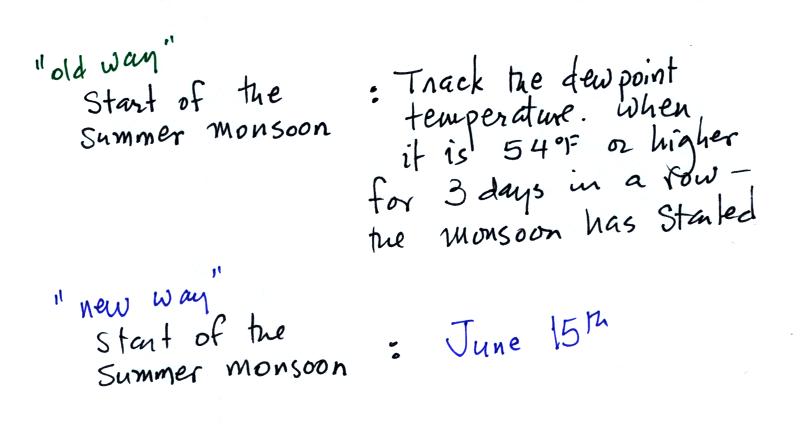 "old way"
Start of the
Summer monsoon
: Track the dewpoint
temperature. When
it is 54°F or higher
for 3 days in a row –
the monsoon has started
"new way"
Start of the
Summer monsoon
: June 15th